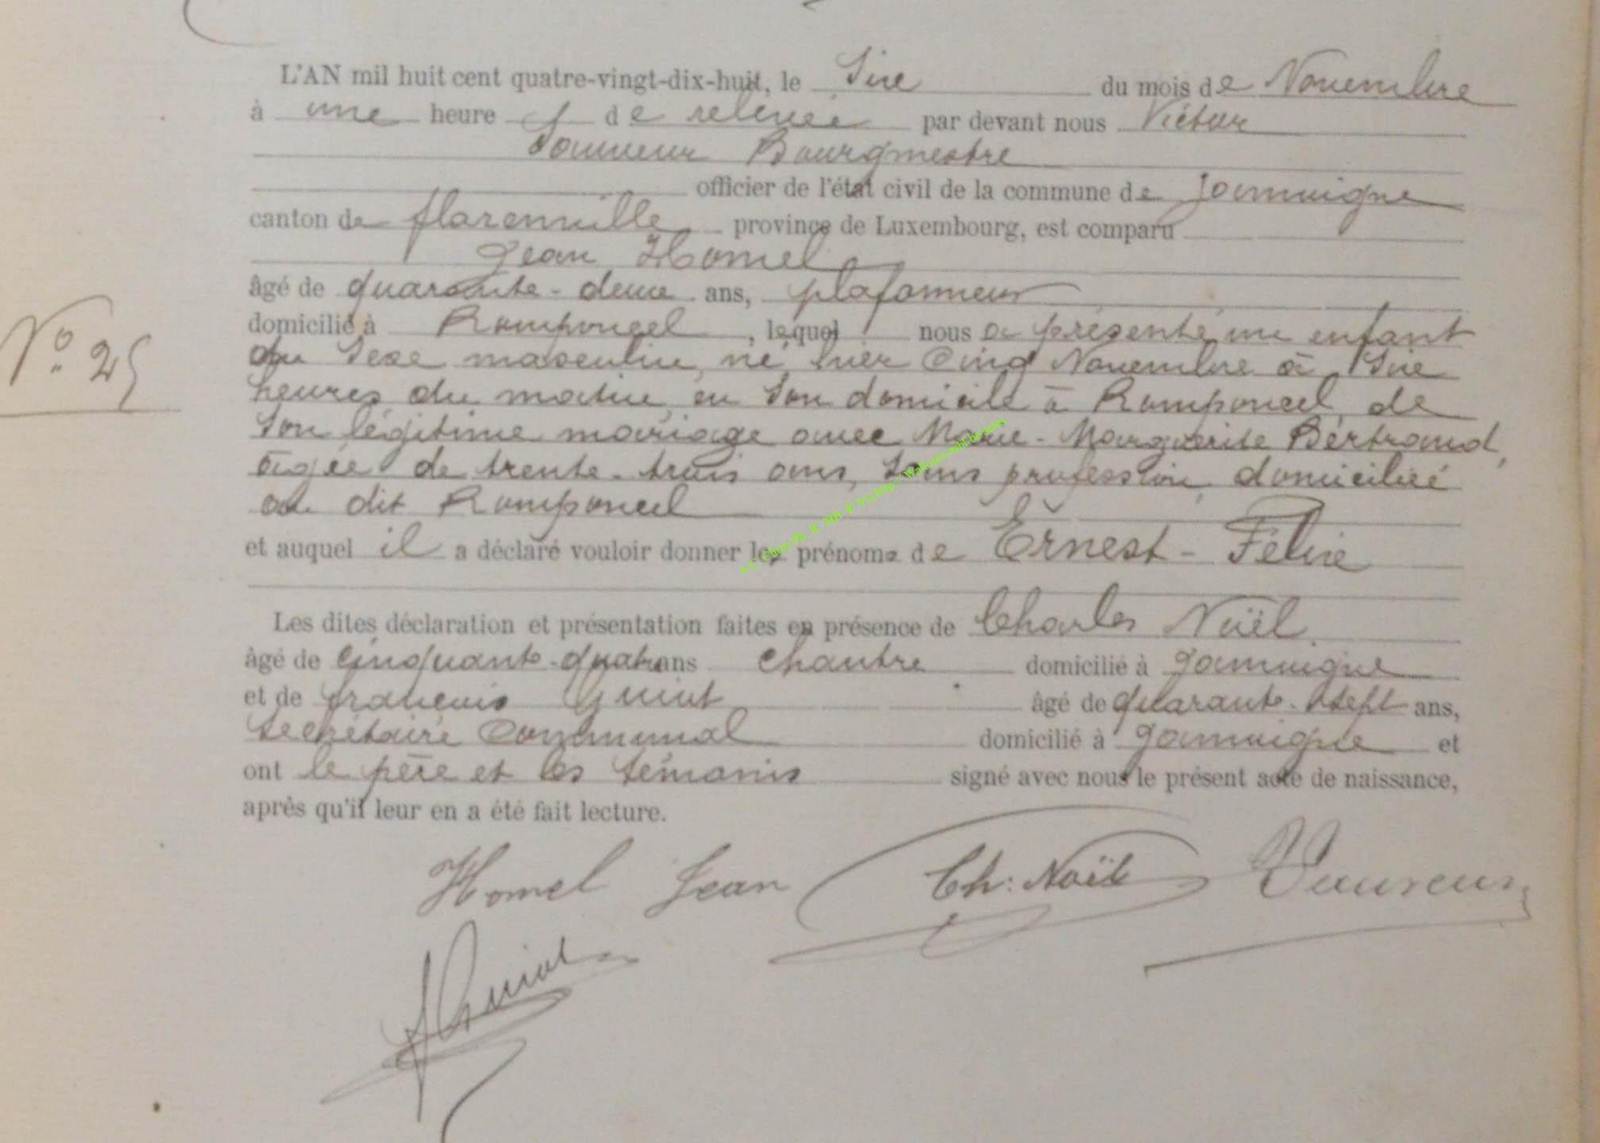 L'AN mil huit cent quatre-vingt-dix-huit, le Six du mois de Novembre
à une heure de relevée par devant nous Victor
Bourgmestre
officier de l'état civil de la commune de Jamoigne
canton de florenville province de Luxembourg, est comparu
Jean Homel
âgé de quarante-deux ans, plafonneur
domicilié à Romponcel, lequel nous a présenté un enfant
du Sexe masculin, né hier Cinq Novembre à Six
heures du matin, en Son domicile à Romponcel, de
Son légitime mariage avec Marie-Marguerite Bertrand,
âgée de trente-trois ans, Sans profession, domiciliée
au dit Romponcel
et auquel il a déclaré vouloir donner les prénoms de Ernest-Félix
Les dites déclaration et présentation faites en présence de Charles Noël,
âgé de Cinquante-quatre ans Chantre domicilié à Jamoigne
et de françois Guiot âgé de quarante-sept ans,
Secrétaire Communal domicilié à Jamoigne et
ont le père et les témoins signé avec nous le présent acte de naissance,
après qu'il leur en a été fait lecture.
N° 25
Homel Jean Ch: Noël
f Guiot